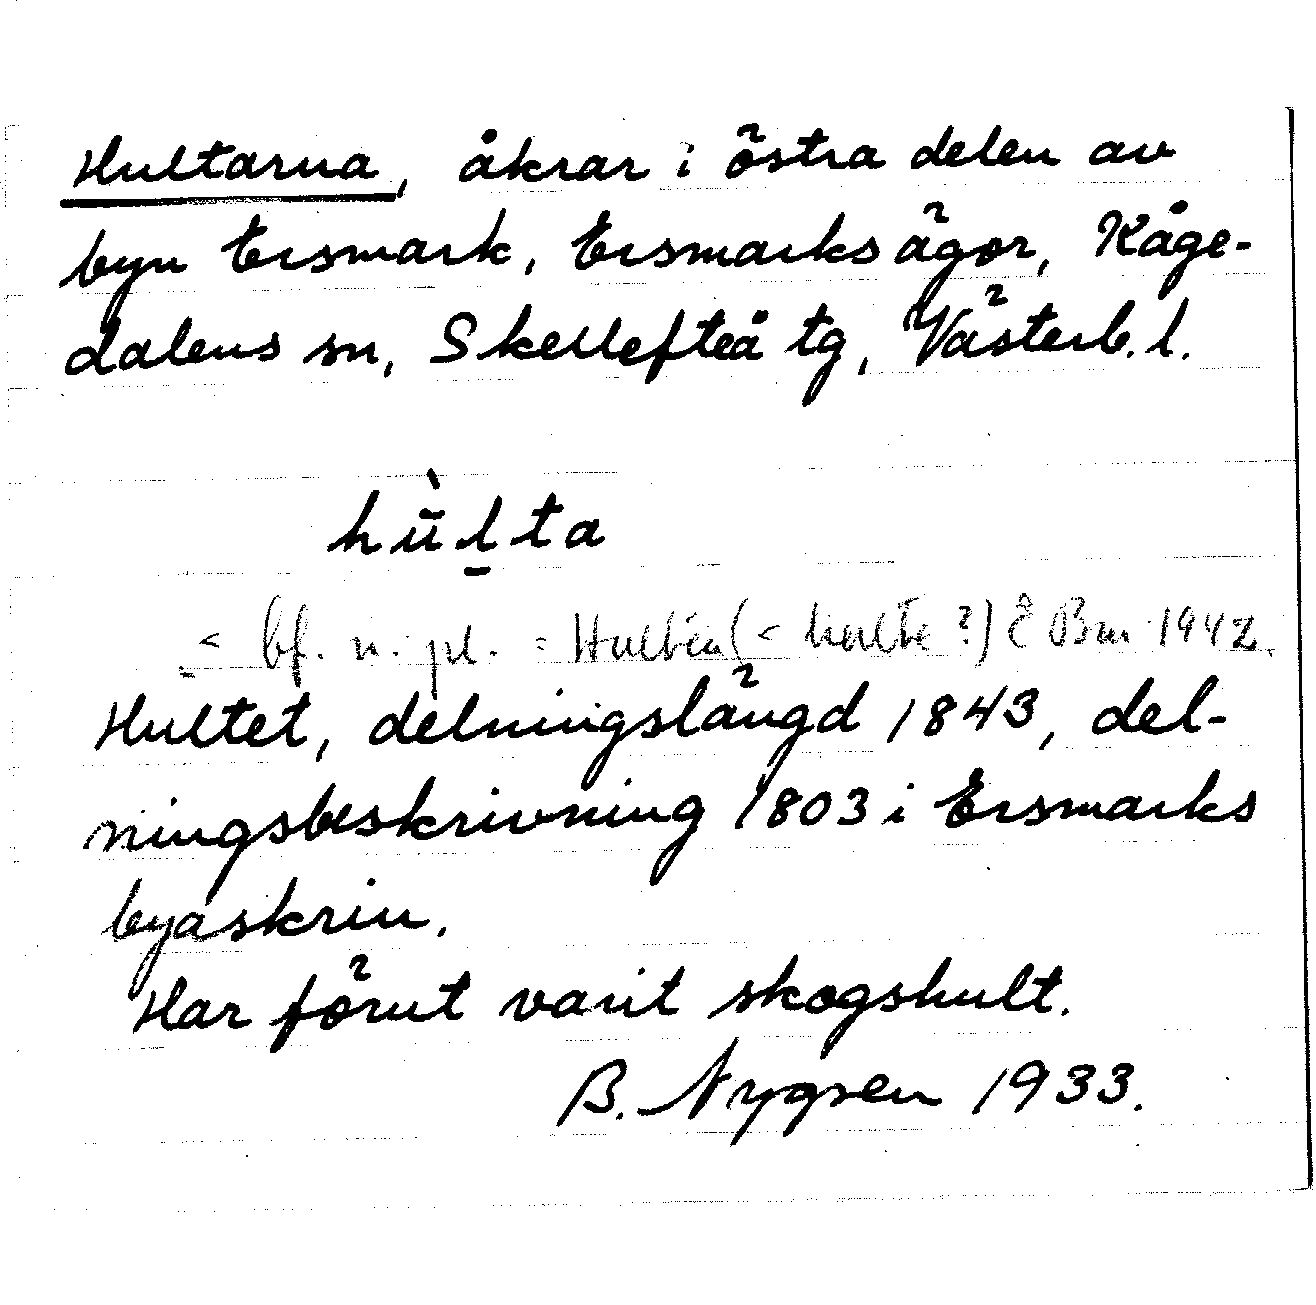 Hultarna, åkrar i östra delen av
byn Ersmark, Ersmarks ägor, Kåge-
dalens sn, Skellefteå tg, Västerb. l.
hùl̠ta
< bf. n. pl. = Hulten (< hulte ?) 1942.
Hultet, delningslängd 1843, del-
ningsbeskrivning 1803 i Ersmarks
byaskrin.
Har förut varit skogshult.
B. Nygren 1933.